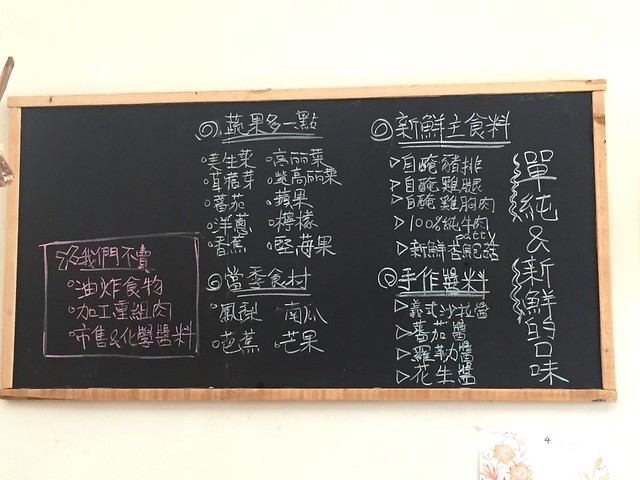 單純&新鮮的口味
◎新鮮主食料
▷自醃豬排
▷自醃雞腿
▷自醃雞胸肉
▷100%純牛肉
patty
▷新鮮杏鮑菇
◎手作醬料
▷義式沙拉醬
▷蕃茄醬
▷羅勒醬
▷花生醬
◎蔬果多一點
°生菜 °高丽菜
°苜蓿芽 °紫高丽菜
°蕃茄 °蘋果
°洋蔥 °檸檬
°香蕉
◎當季食材
°鳳梨 南瓜
°芭蕉 °芒果
我們不賣
°油炸食物
°加工重組肉
°市售&化學醬料
4